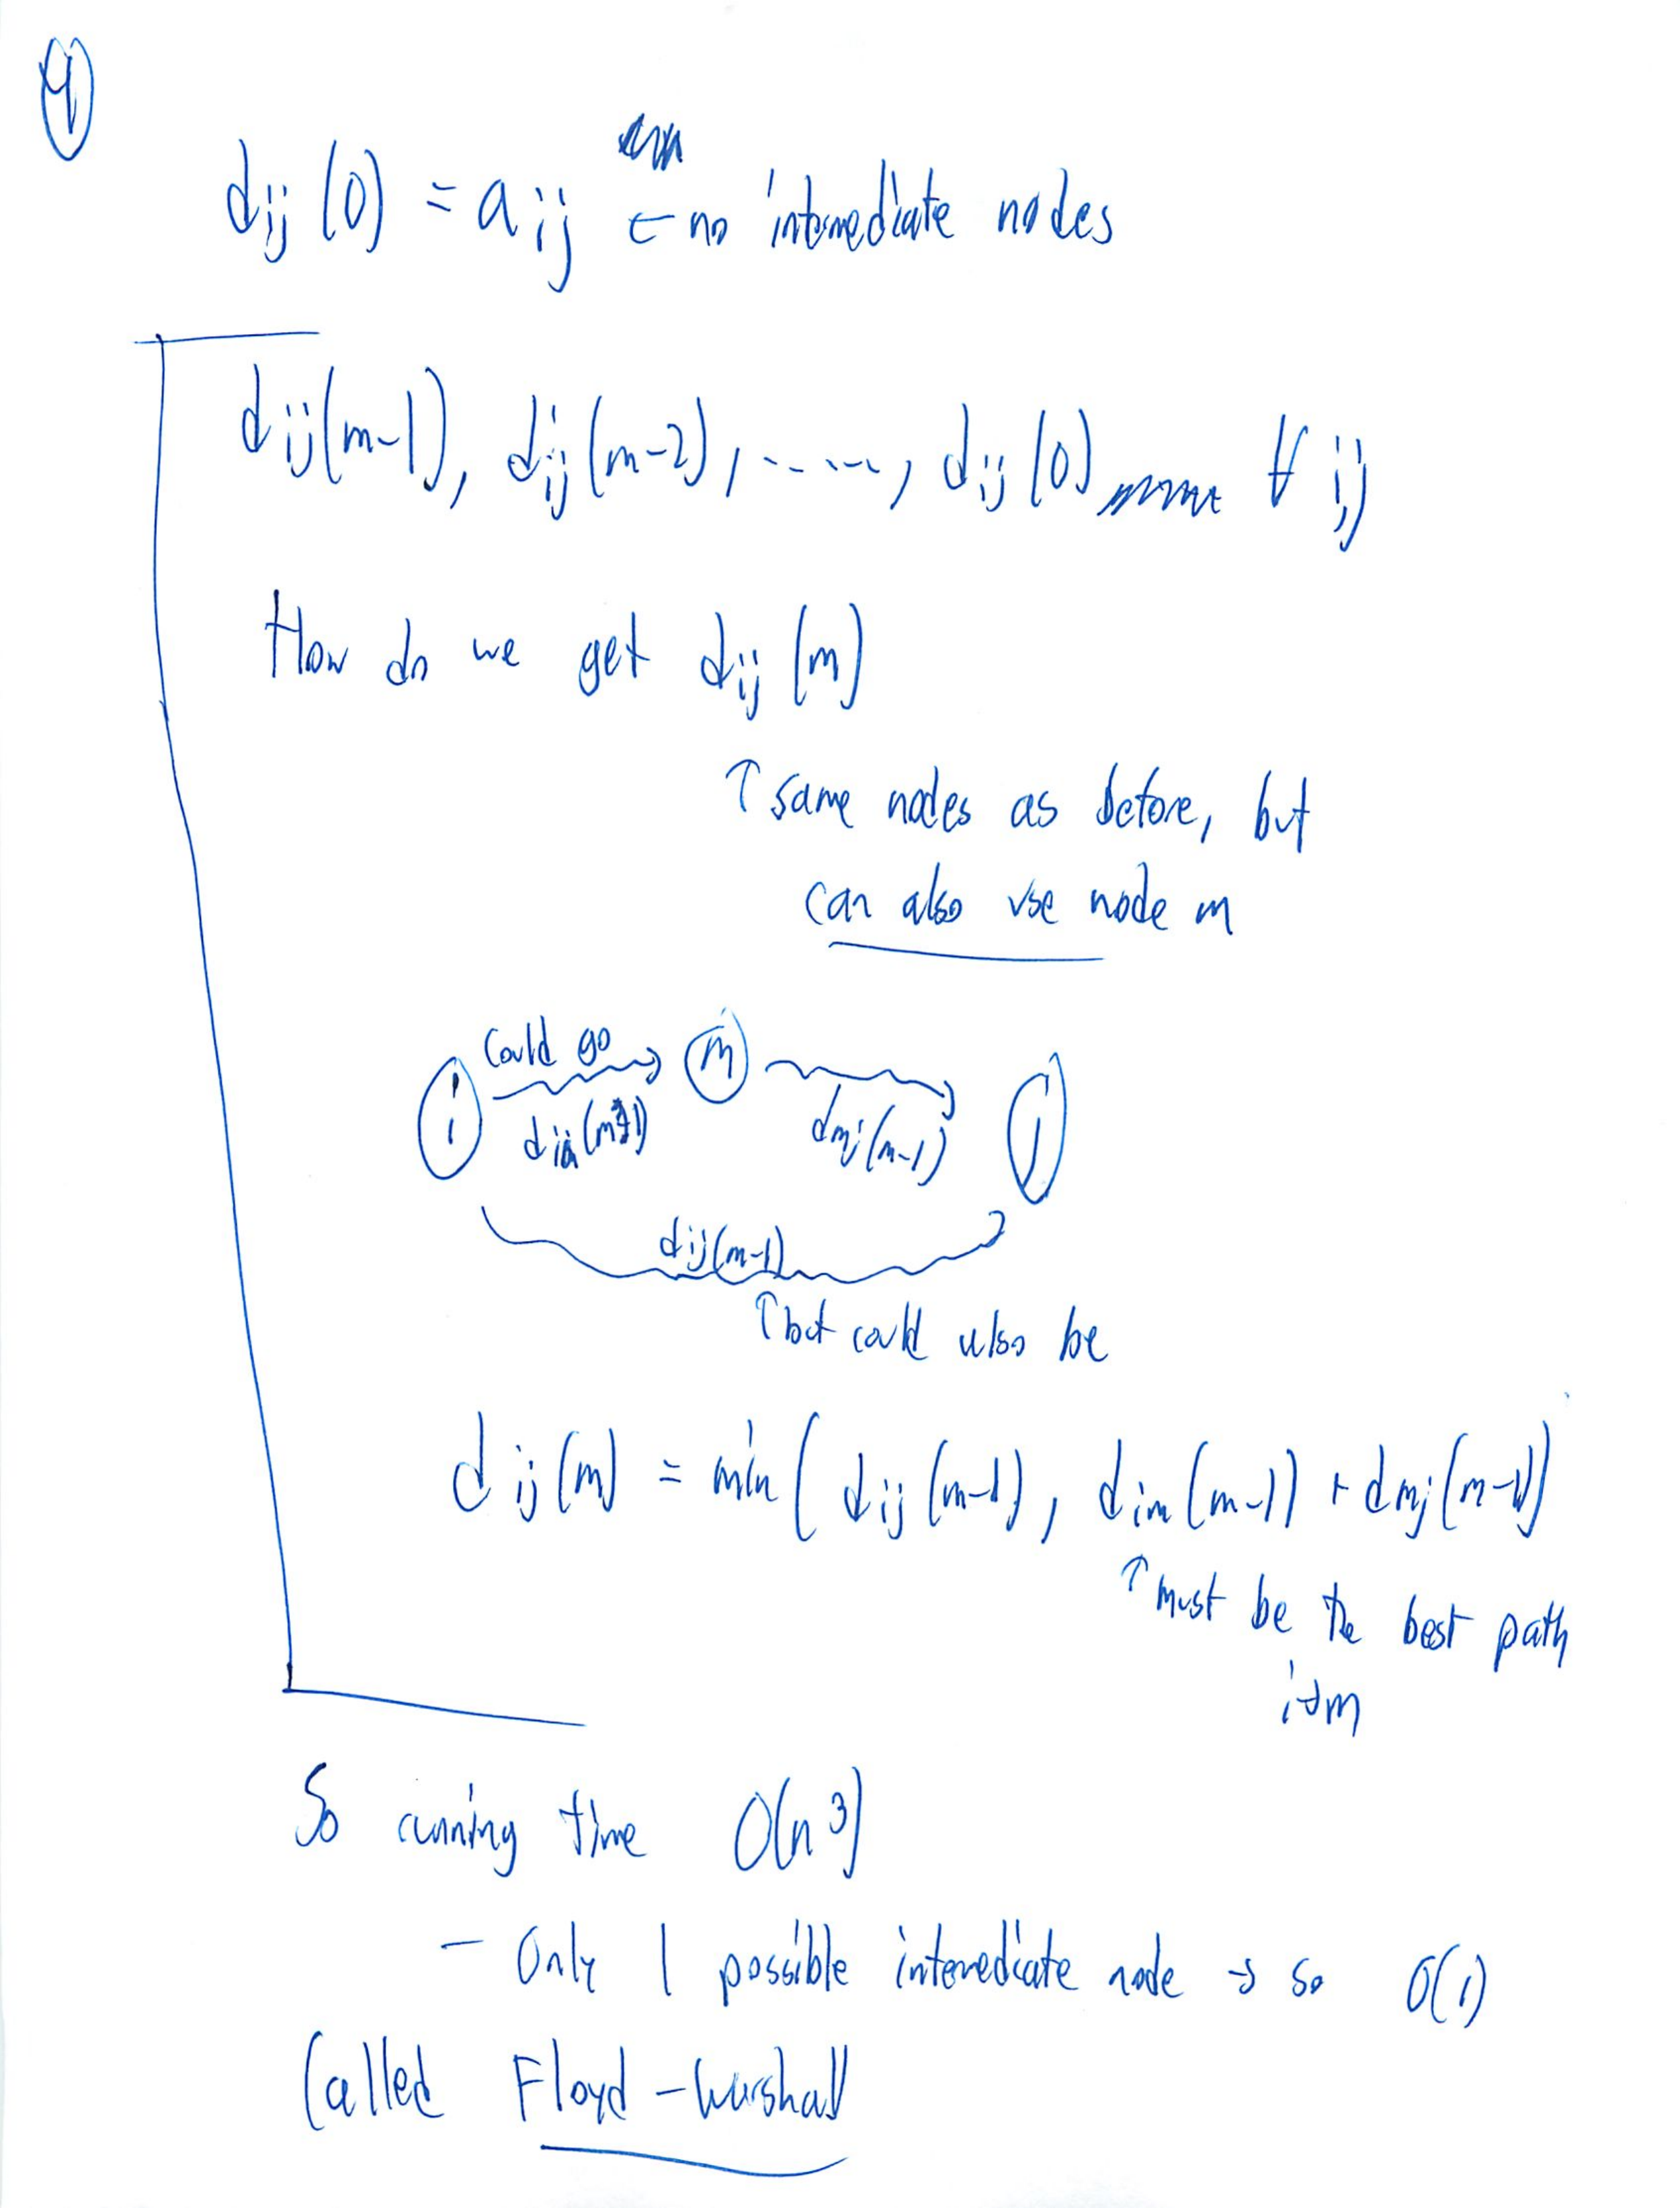 4
dij(0) = aij ← no intermediate nodes
dij(m-1), dij(m-2), ......, dij(0) ∀ i,j
How do we get dij(m)
↑ same nodes as before, but
can also use node m
Could go
i m j
dim(m-1) dmj(m-1)
dij(m-1)
↑ but could also be
dij(m) = min( dij(m-1), dim(m-1) + dmj(m-1)
↑ must be the best path
i→m
So running time O(n³)
- Only 1 possible intermediate node → so O(1)
Called Floyd-Warshall